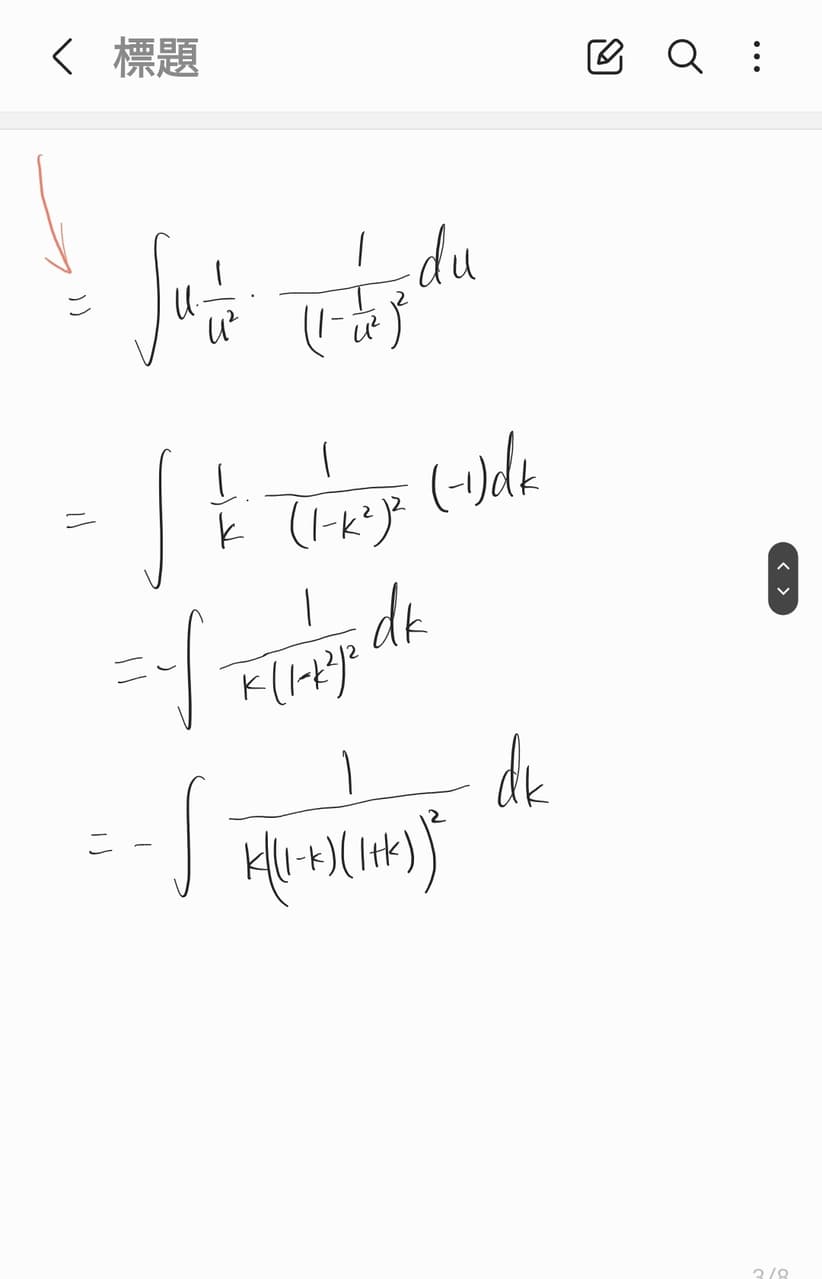 標題
= ∫ u · 1/u² · 1/(1 - 1/u²)² du
= ∫ 1/k · 1/(1-k²)² (-1)dk
= - ∫ 1/(k(1-k²)²) dk
= - ∫ 1/(k((1-k)(1+k))²) dk
3/8